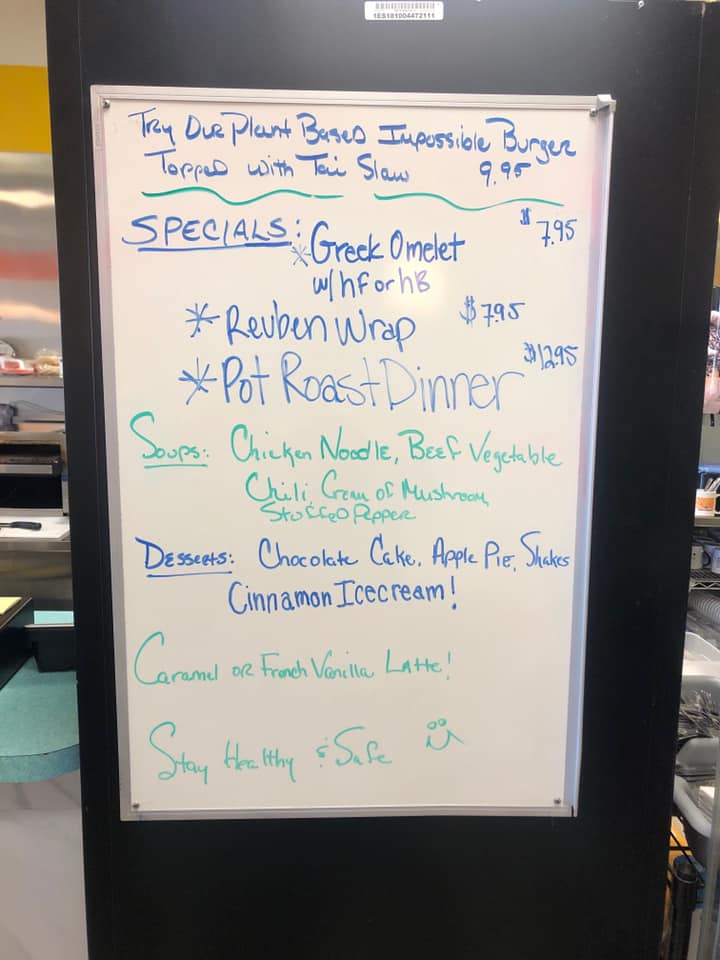 1ES181004472111
Try Our Plant Based Impossible Burger
Topped with Tai Slaw 9.95
SPECIALS: *Greek Omelet $7.95
w/hf or hB
*Reuben Wrap $7.95
*Pot Roast Dinner $12.95
Soups: Chicken Noodle, Beef Vegetable
Chili, Cream of Mushroom,
Stuffed Pepper
Desserts: Chocolate Cake, Apple Pie, Shakes
Cinnamon Icecream!
Caramel or French Vanilla Latte!
Stay Healthy & Safe